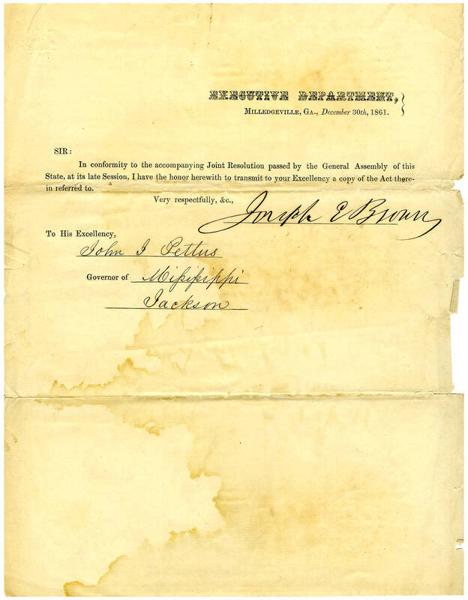 EXECUTIVE DEPARTMENT,
MILLEDGEVILLE, GA., December 30th, 1861.
SIR:
In conformity to the accompanying Joint Resolution passed by the General Assembly of this
State, at its late Session, I have the honor herewith to transmit to your Excellency a copy of the Act there-
in referred to.
Very respectfully, &c.,
Joseph E Brown
To His Excellency,
John J Pettus
Governor of Missisippi
Jackson